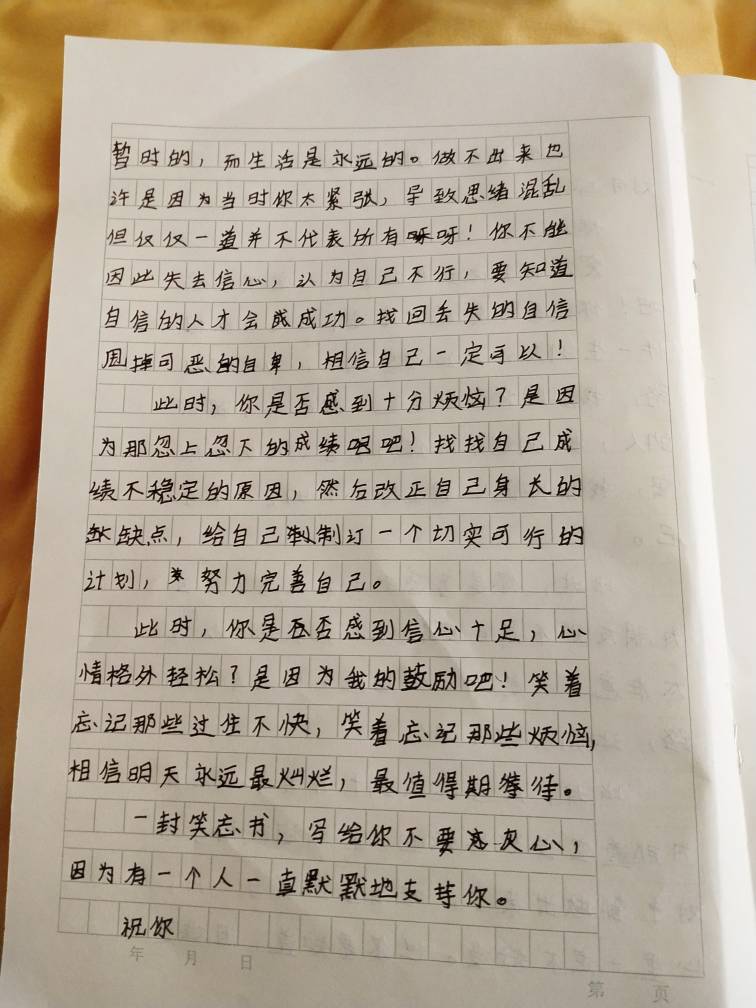 暂时的，而生活是永远的。做不出来也
许是因为当时你太紧张，导致思绪混乱
但仅仅一道并不代表所有呀！你不能
因此失去信心，认为自己不行，要知道
自信的人才会成成功。找回丢失的自信
甩掉可恶的自卑，相信自己一定可以！
此时，你是否感到十分烦恼？是因
为那忽上忽下的成绩吧！找找自己成
绩不稳定的原因，然后改正自己身长的
缺点，给自己制订一个切实可行的
计划，努力完善自己。
此时，你是否感到信心十足，心
情格外轻松？是因为我的鼓励吧！笑着
忘记那些过往不快，笑着忘记那些烦恼，
相信明天永远最灿烂，最值得期待。
一封笑忘书，写给你不要灰心，
因为有一个人一直默默地支持你。
祝你
年 月 日
第 页